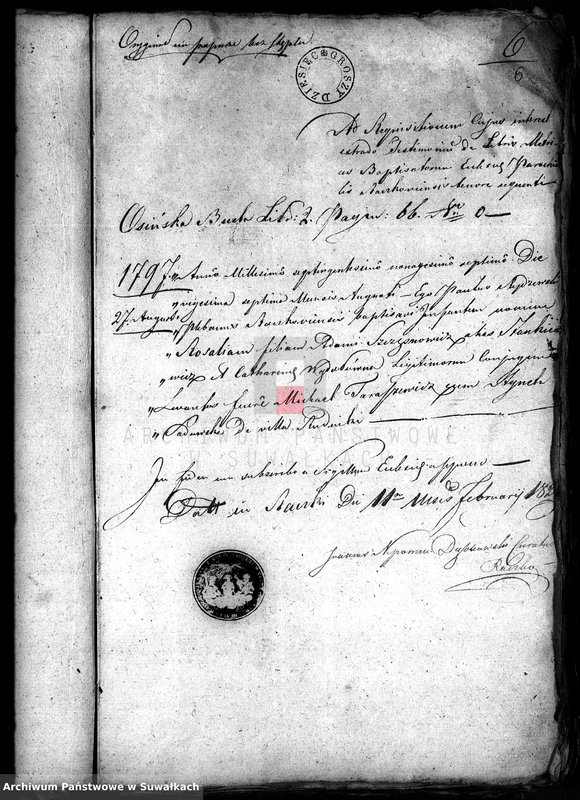 Oryginał na papierze bez stępla
6
6
DZIESIĘC GROSZY
Ad Requisitionem Cujus interest
extrado Testimonium de Libris Metri
cis Baptisatorum Ecclesiæ Parochia
lis Raczkoviensis tenore sequenti
Osińska Buda Lib: 2. Pagin: 66. Nro 0
1797 Anno Millesimo septingentesimo nonagesimo septimo Die
27. Augusti
vigesima septima Mensis Augusti Ego Paulus
Plebanus Raczkoviensis baptisavi Infantem nomine
Rosaliam filiam Adami alias Stankie
wicz et Catharinæ Legitimorum Conjugum
Levantes fuere Michael Taraszewicz cum
de villa Rudniki
In fidem me subscribo et Sigillum Ecclesiæ appono
Datt in Raczki Die 11a Mens Februarij 182
Joannes Nepomucen Curatus
ARCHIWUM PAŃSTWOWE
W SUWAŁKACH
Archiwum Państwowe w Suwałkach